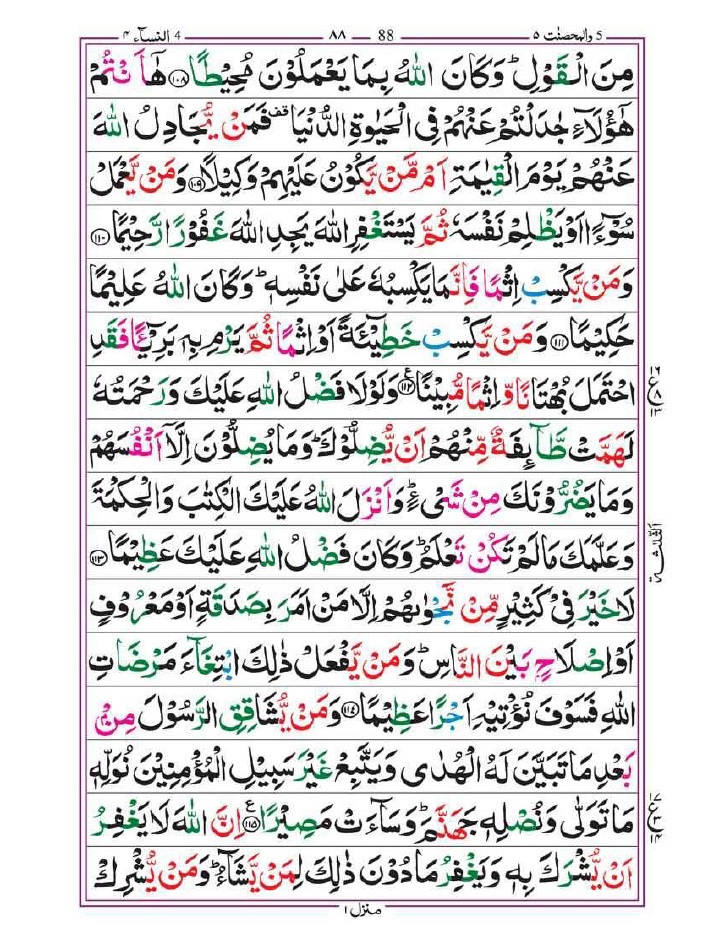 5 والمحصنت ۵ 88 ۸۸ 4 النسآء ۴
مِنَ الْقَوْلِ ؕ وَكَانَ اللّٰهُ بِمَا يَعْمَلُوْنَ مُحِيْطًا ﴿۱۰۸﴾ هٰۤاَنْتُمْ
هٰۤؤُلَآءِ جٰدَلْتُمْ عَنْهُمْ فِى الْحَيٰوةِ الدُّنْيَا ۟ قف فَمَنْ يُّجَادِلُ اللّٰهَ
عَنْهُمْ يَوْمَ الْقِيٰمَةِ اَمْ مَّنْ يَّكُوْنُ عَلَيْهِمْ وَكِيْلًا ﴿۱۰۹﴾ وَمَنْ يَّعْمَلْ
سُوْٓءًا اَوْ يَظْلِمْ نَفْسَهٗ ثُمَّ يَسْتَغْفِرِ اللّٰهَ يَجِدِ اللّٰهَ غَفُوْرًا رَّحِيْمًا ﴿۱۱۰﴾
وَمَنْ يَّكْسِبْ اِثْمًا فَاِنَّمَا يَكْسِبُهٗ عَلٰى نَفْسِهٖ ؕ وَكَانَ اللّٰهُ عَلِيْمًا
حَكِيْمًا ﴿۱۱۱﴾ وَمَنْ يَّكْسِبْ خَطِيْٓئَةً اَوْ اِثْمًا ثُمَّ يَرْمِ بِهٖ بَرِيْٓئًا فَقَدِ
احْتَمَلَ بُهْتَانًا وَّاِثْمًا مُّبِيْنًا ﴿۱۱۲﴾ ع وَلَوْلَا فَضْلُ اللّٰهِ عَلَيْكَ وَرَحْمَتُهٗ
لَهَمَّتْ طَّآئِفَةٌ مِّنْهُمْ اَنْ يُّضِلُّوْكَ ؕ وَمَا يُضِلُّوْنَ اِلَّاۤ اَنْفُسَهُمْ
وَمَا يَضُرُّوْنَكَ مِنْ شَىْءٍ ؕ وَاَنْزَلَ اللّٰهُ عَلَيْكَ الْكِتٰبَ وَالْحِكْمَةَ
وَعَلَّمَكَ مَا لَمْ تَكُنْ تَعْلَمُ ؕ وَكَانَ فَضْلُ اللّٰهِ عَلَيْكَ عَظِيْمًا ﴿۱۱۳﴾
لَا خَيْرَ فِىْ كَثِيْرٍ مِّنْ نَّجْوٰىهُمْ اِلَّا مَنْ اَمَرَ بِصَدَقَةٍ اَوْ مَعْرُوْفٍ
اَوْ اِصْلَاحٍۭ بَيْنَ النَّاسِ ؕ وَمَنْ يَّفْعَلْ ذٰلِكَ ابْتِغَآءَ مَرْضَاتِ
اللّٰهِ فَسَوْفَ نُؤْتِيْهِ اَجْرًا عَظِيْمًا ﴿۱۱۴﴾ وَمَنْ يُّشَاقِقِ الرَّسُوْلَ مِنْۢ
بَعْدِ مَا تَبَيَّنَ لَهُ الْهُدٰى وَيَتَّبِعْ غَيْرَ سَبِيْلِ الْمُؤْمِنِيْنَ نُوَلِّهٖ
مَا تَوَلّٰى وَنُصْلِهٖ جَهَنَّمَ ؕ وَسَآءَتْ مَصِيْرًا ﴿۱۱۵﴾ ع اِنَّ اللّٰهَ لَا يَغْفِرُ
اَنْ يُّشْرَكَ بِهٖ وَيَغْفِرُ مَا دُوْنَ ذٰلِكَ لِمَنْ يَّشَآءُ ؕ وَمَنْ يُّشْرِكْ
منزل ۱
ع
الثلثة
ع